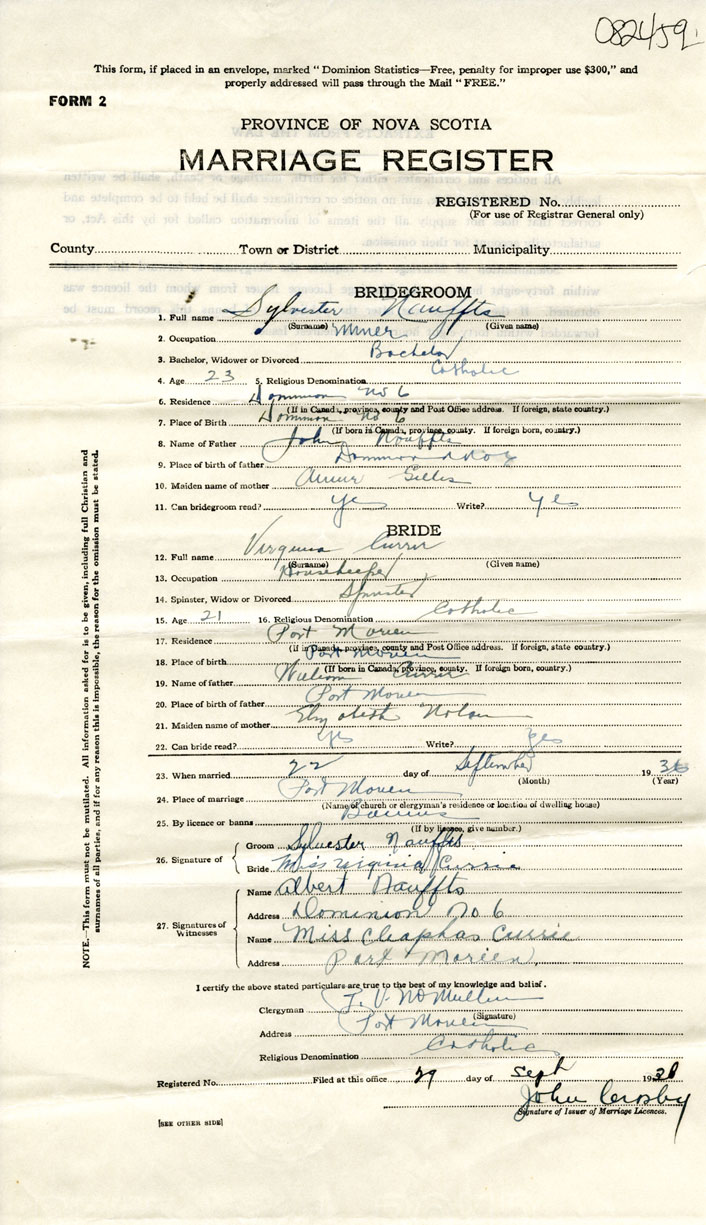 082459
This form, if placed in an envelope, marked "Dominion Statistics—Free, penalty for improper use $300," and
properly addressed will pass through the Mail "FREE."
FORM 2
PROVINCE OF NOVA SCOTIA
MARRIAGE REGISTER
REGISTERED No.
(For use of Registrar General only)
County Town or District Municipality
BRIDEGROOM
1. Full name Sylvester Nauffts
(Surname) (Given name)
2. Occupation Miner
3. Bachelor, Widower or Divorced Bachelor
4. Age 23 5. Religious Denomination Catholic
6. Residence Dominion No 6
(If in Canada, province, county and Post Office address. If foreign, state country.)
7. Place of Birth Dominion No 6
(If born in Canada, province, county. If foreign born, country.)
8. Name of Father John Nauffts
9. Place of birth of father Dominion No 6
10. Maiden name of mother Gillis
11. Can bridegroom read? yes Write? yes
BRIDE
12. Full name Virginia Currie
(Surname) (Given name)
13. Occupation Housekeeper
14. Spinster, Widow or Divorced Spinster
15. Age 21 16. Religious Denomination Catholic
17. Residence Port Morien
(If in Canada, province, county and Post Office address. If foreign, state country.)
18. Place of birth Port Morien
(If born in Canada, province, county. If foreign born, country.)
19. Name of father William Currie
20. Place of birth of father Port Morien
21. Maiden name of mother Elizabeth Nolan
22. Can bride read? yes Write? yes
23. When married 22 day of September 1936
(Month) (Year)
24. Place of marriage Port Morien
(Name of church or clergyman's residence or location of dwelling house)
25. By licence or banns Banns
(If by licence, give number.)
26. Signature of
Groom Sylvester Nauffts
Bride Miss Virginia Currie
27. Signatures of Witnesses
Name Albert Nauffts
Address Dominion No 6
Name Miss Cleophas Currie
Address Port Morien
I certify the above stated particulars are true to the best of my knowledge and belief.
Clergyman
(Signature)
Address Port Morien
Religious Denomination Catholic
Registered No. Filed at this office 29 day of Sept 19
John Crosby
Signature of Issuer of Marriage Licences.
[SEE OTHER SIDE]
NOTE.—This form must not be mutilated. All information asked for is to be given, including full Christian and
surnames of all parties, and if for any reason this is impossible, the reason for the omission must be stated.